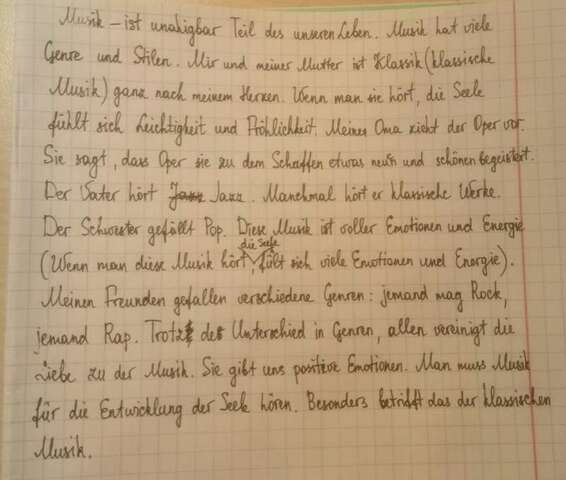 Musik – ist unahigbar Teil des unseren Leben. Musik hat viele
Genre und Stilen. Mir und meiner Mutter ist Klassik (klassische
Musik) ganz nach meinem Herzen. Wenn man sie hört, die Seele
fühlt sich Leichtigkeit und Fröhlichkeit. Meine Oma zieht der Oper vor.
Sie sagt, dass Oper sie zu dem Schaffen etwas neu'n und schönen begeistert.
Der Vater hört Jazz Jazz. Manchmal hört er klassische Werke.
Der Schwester gefällt Pop. Diese Musik ist voller Emotionen und Energie
die Seele
(Wenn man diese Musik hört fült sich viele Emotionen und Energie).
Meinen Freunden gefallen verschiedene Genren: jemand mag Rock,
jemand Rap. Trotz des Unterschied in Genren, allen vereinigt die
Liebe zu der Musik. Sie gibt uns positive Emotionen. Man muss Musik
für die Entwicklung der Seele hören. Besonders betrifft das der klassischen
Musik.